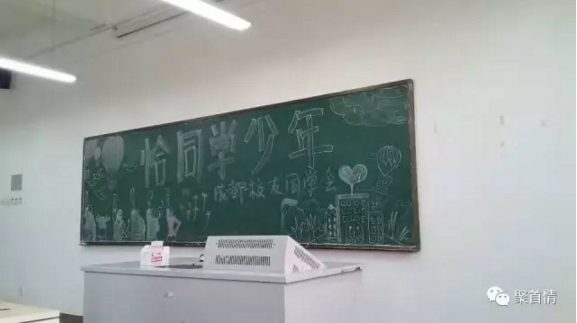 恰同学少年
成都校友同学会
聚首情